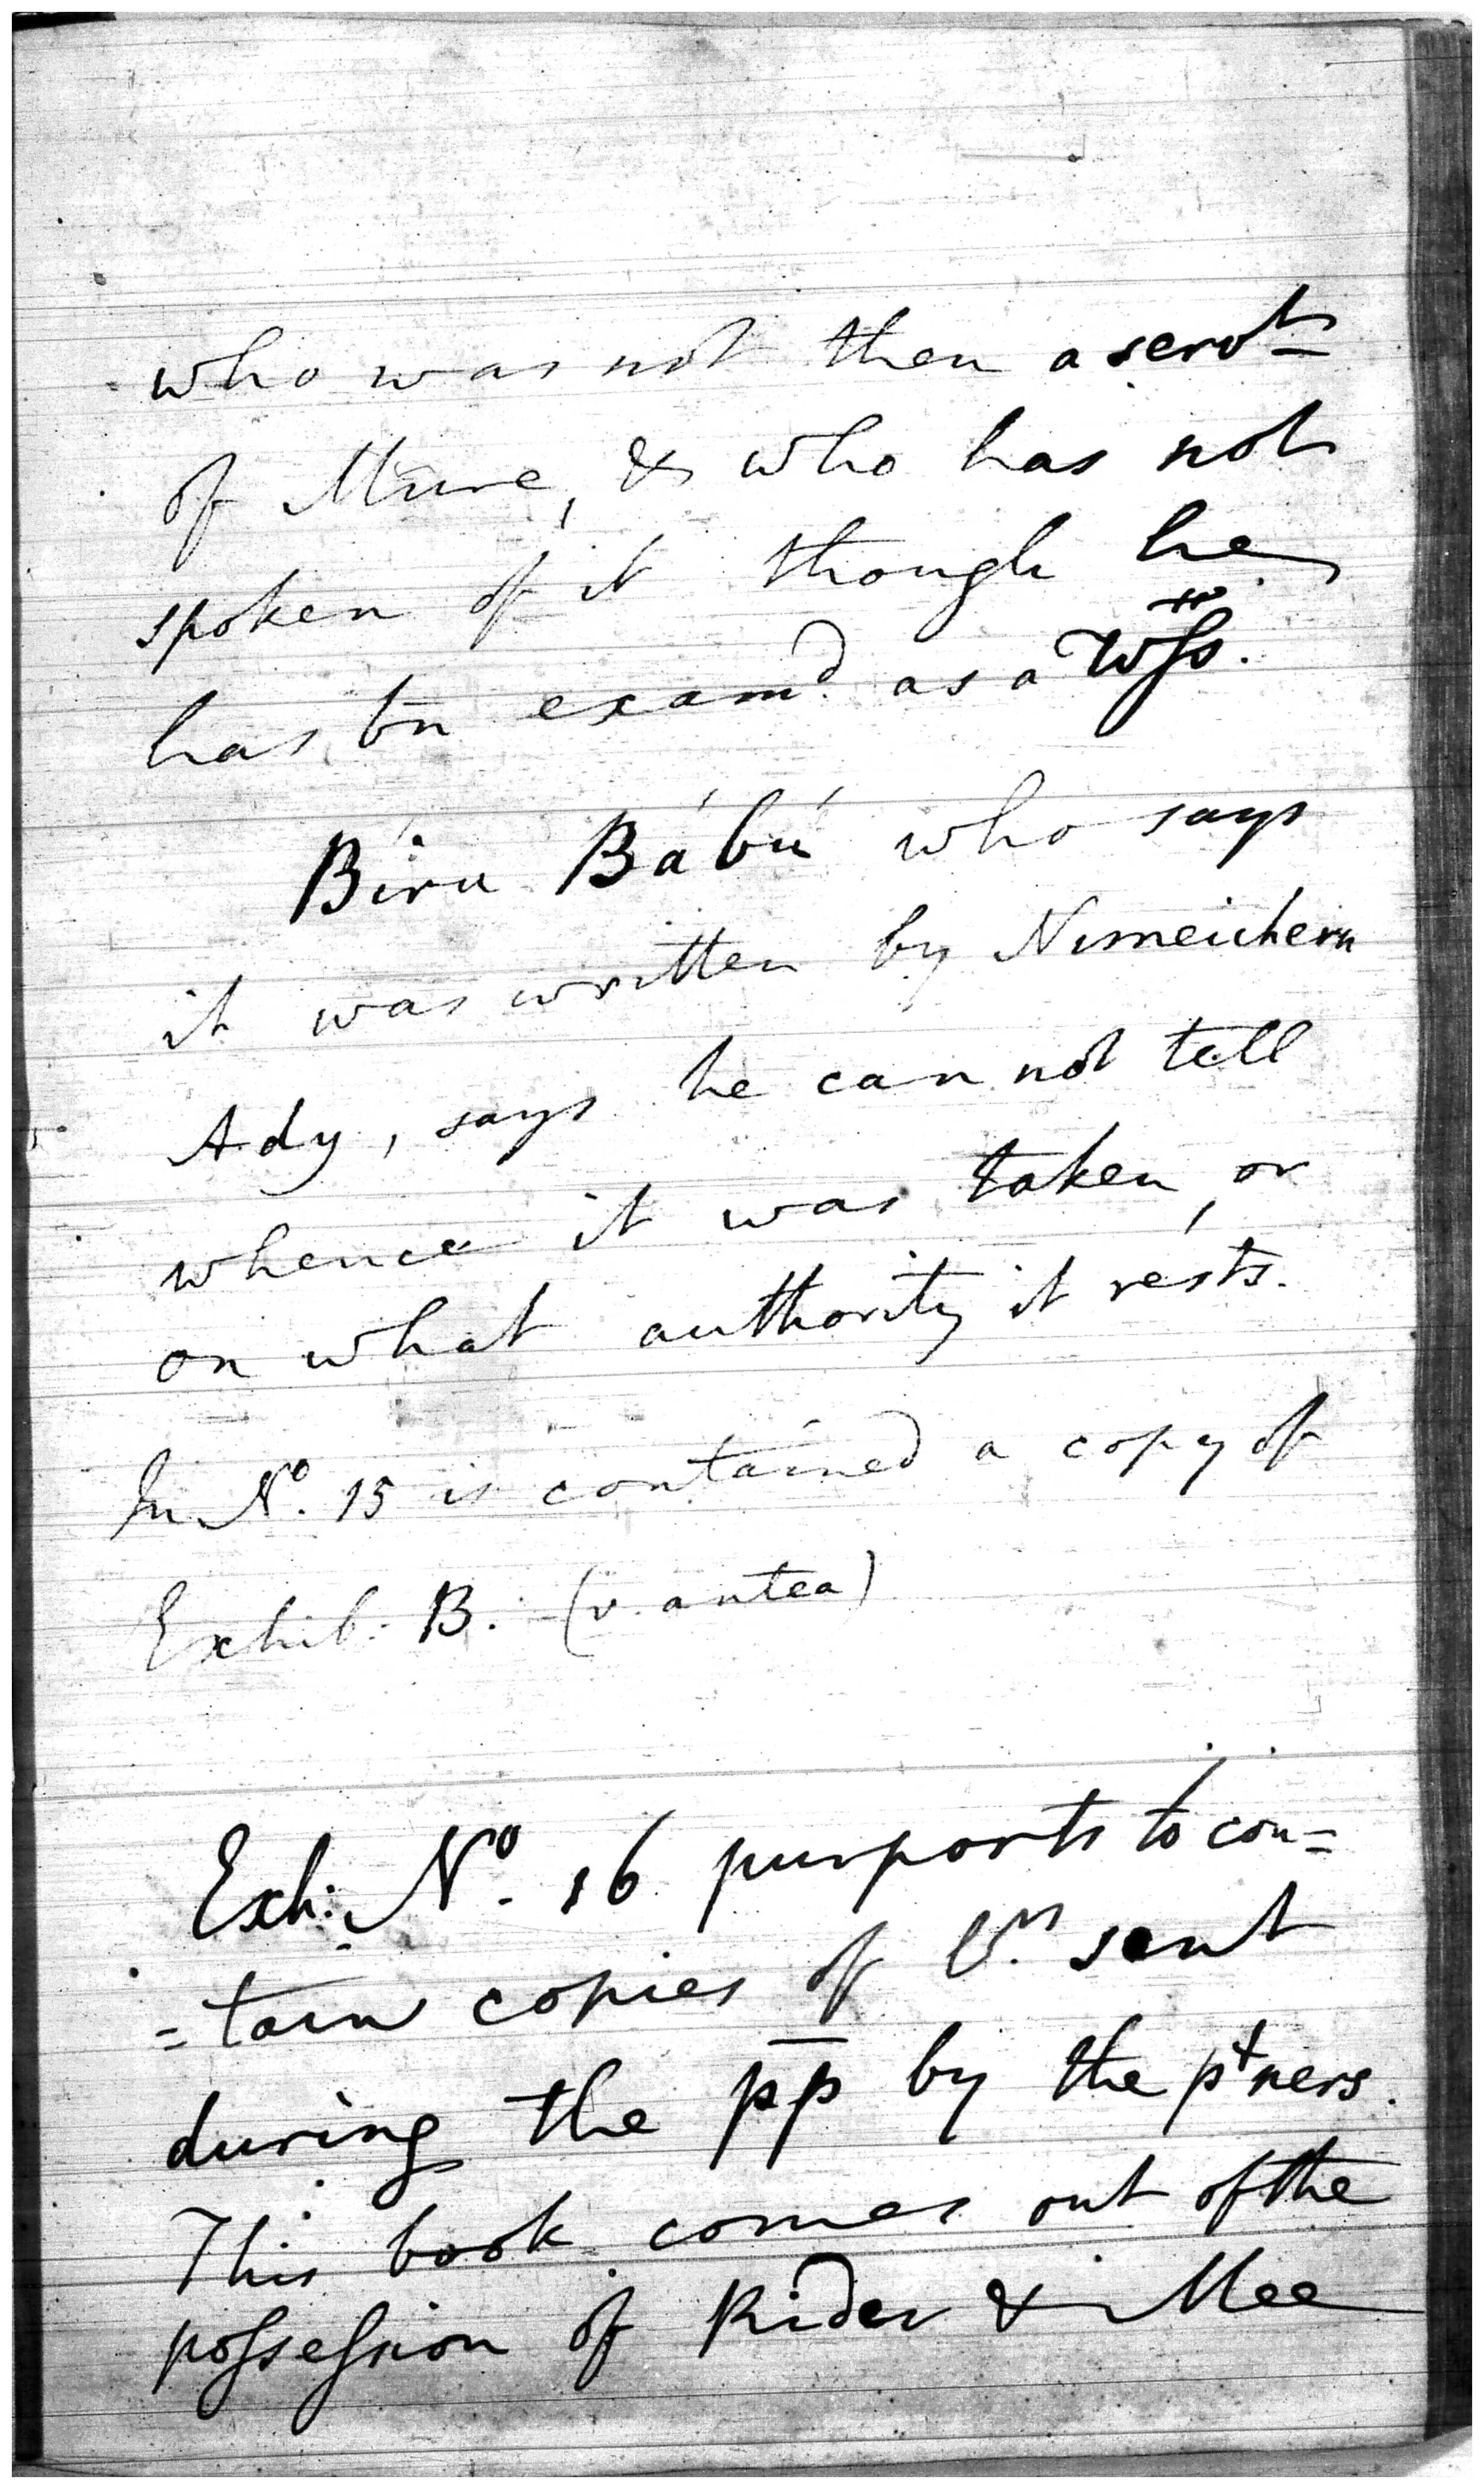 who was not then a servt
of Mūre, & who has not
spoken of it though he
has bn examd as a Wss.
Bíru Bábú who says
it was written by
Ady, says he can not tell
whence it was taken, or
on what authority it rests.
In No. 15 is contained a copy of
Exhib: B. (v. antea)
Exh: No. 16 purports to con=
=tain copies of sent
during the pp by the ptners.
This book comes out of the
possession of Rider & Mee